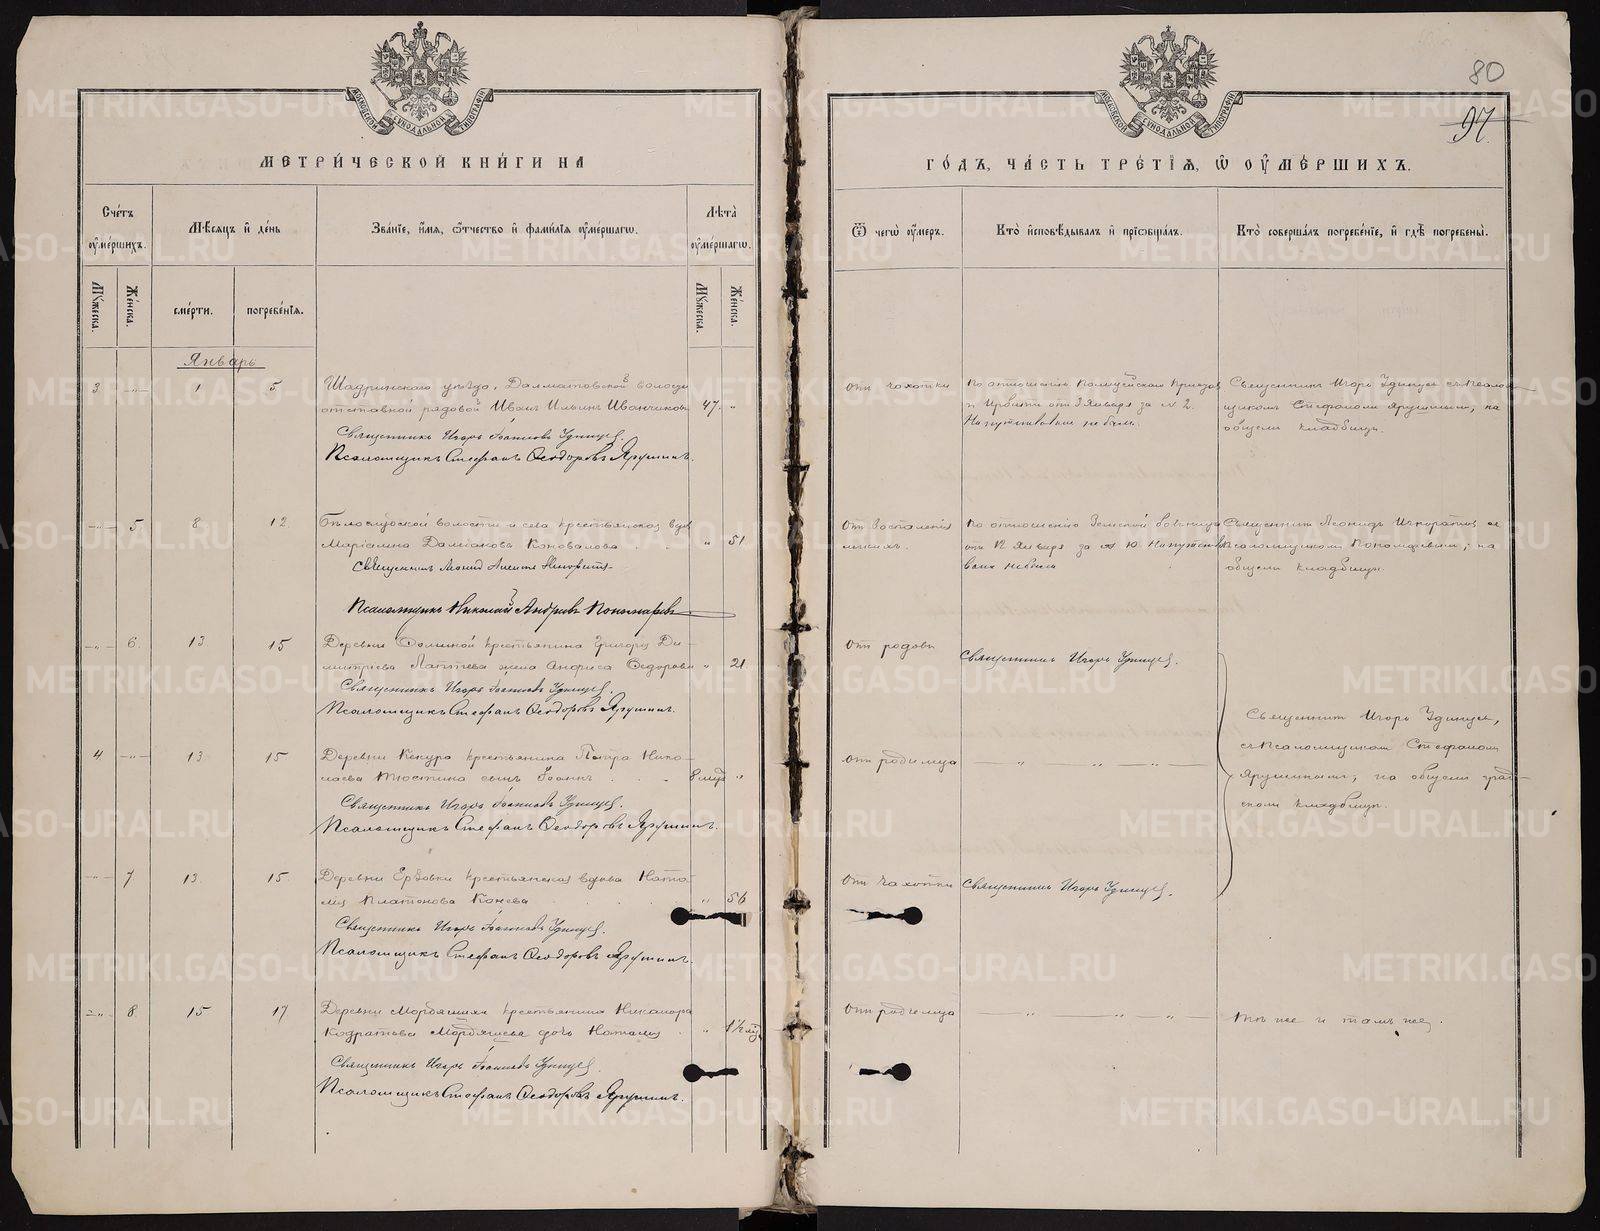 МОСКОВСКОЙ СѴНОДАЛЬНОЙ ТИПОГРАФІИ
МЕТРИ́ЧЕСКОЙ КНИ́ГИ НА
Сче́тъ ᲂу҆ме́ршихъ.
Мѣ́сяцъ и҆ де́нь
Зва́нїе, и҆́мѧ, ѻ҆́тчество и҆ фами́лїѧ ᲂу҆ме́ршагѡ.
Лѣ́та ᲂу҆ме́ршагѡ.
Мꙋ́жеска.
Же́нска.
сме́рти.
погребе́нїѧ.
Мꙋ́жеска.
Же́нска.
Январь
3 — „ — 1 5 Шадринскаго уѣзда, Далматовской волости
отставной рядовой Иванъ Ильинъ Иванчиковъ 47. „
Священникъ Игорь Іоанновъ Удинцев.
Псаломщикъ Стефанъ Ѳеодоровъ Ярушинъ.
— „ — 5 8 12 Бѣлослудской волости и села крестьянская вдова
Коновалова „ 51
Священникъ Леонид
Псаломщикъ Николай Андреевъ Пономаревъ
— „ — 6. 13 15 Деревни крестьянина Григорія Ди-
митріева Лаптева жена Анфиса Ѳедорова „ 21
Священникъ Игорь Іоанновъ Удинцев.
Псаломщикъ Стефанъ Ѳеодоровъ Ярушинъ.
4 — „ — 13 15 Деревни Кекура крестьянина Петра Нико-
лаева сынъ Іоаннъ 8 „
Священникъ Игорь Іоанновъ Удинцев.
Псаломщикъ Стефанъ Ѳеодоровъ Ярушинъ.
— „ — 7. 13. 15. Деревни крестьянская вдова Ната-
лія Платонова Конева „ 56
Священникъ Игорь Іоанновъ Удинцев.
Псаломщикъ Стефанъ Ѳеодоровъ Ярушинъ.
— „ — 8. 15 17 Деревни крестьянина Никанора
Кодратьева Мордяшева дочь Наталія „ 1½
Священникъ Игорь Іоанновъ Удинцев.
Псаломщикъ Стефанъ Ѳеодоровъ Ярушинъ.
80
97.
МОСКОВСКОЙ СѴНОДАЛЬНОЙ ТИПОГРАФІИ
ГО́ДЪ, ЧА́СТЬ ТРЕ́ТЇѦ, Ѡ҆ ОУ҆МЕ́РШИХЪ.
Ѿ чегѡ̀ ᲂу҆́меръ.
Кто̀ и҆сповѣ́дывалъ и҆ прїѡбща́лъ.
Кто̀ соверша́лъ погребе́нїе, и҆ гдѣ̀ погребены̀.
отъ чахотки
По отношенію Полицейскаго
г. Ирбити отъ 3 Января за № 2.
Напутствованъ не былъ.
Священникъ Игорь Удинцев съ псалом-
щикомъ Стефаномъ Ярушинымъ, на
общемъ кладбищѣ.
Отъ воспаленія
легкихъ.
По отношенію Земской больницы
отъ 12 Января за № 10. Напутство-
вана не была
Священникъ Леонидъ съ
псаломщикомъ Пономаревымъ; на
общемъ кладбищѣ.
Отъ родовъ
Священникъ Игорь Удинцев.
Священникъ Игорь Удинцев,
съ псаломщикомъ Стефаномъ
Ярушинымъ, на общемъ град-
скомъ кладбищѣ.
Отъ родимца — „ — „ — „ —
Отъ чахотки
Священникъ Игорь Удинцев.
Отъ родимца — „ — „ — „ —
Тѣ же и тамъ же.
METRIKI.GASO-URAL.RU